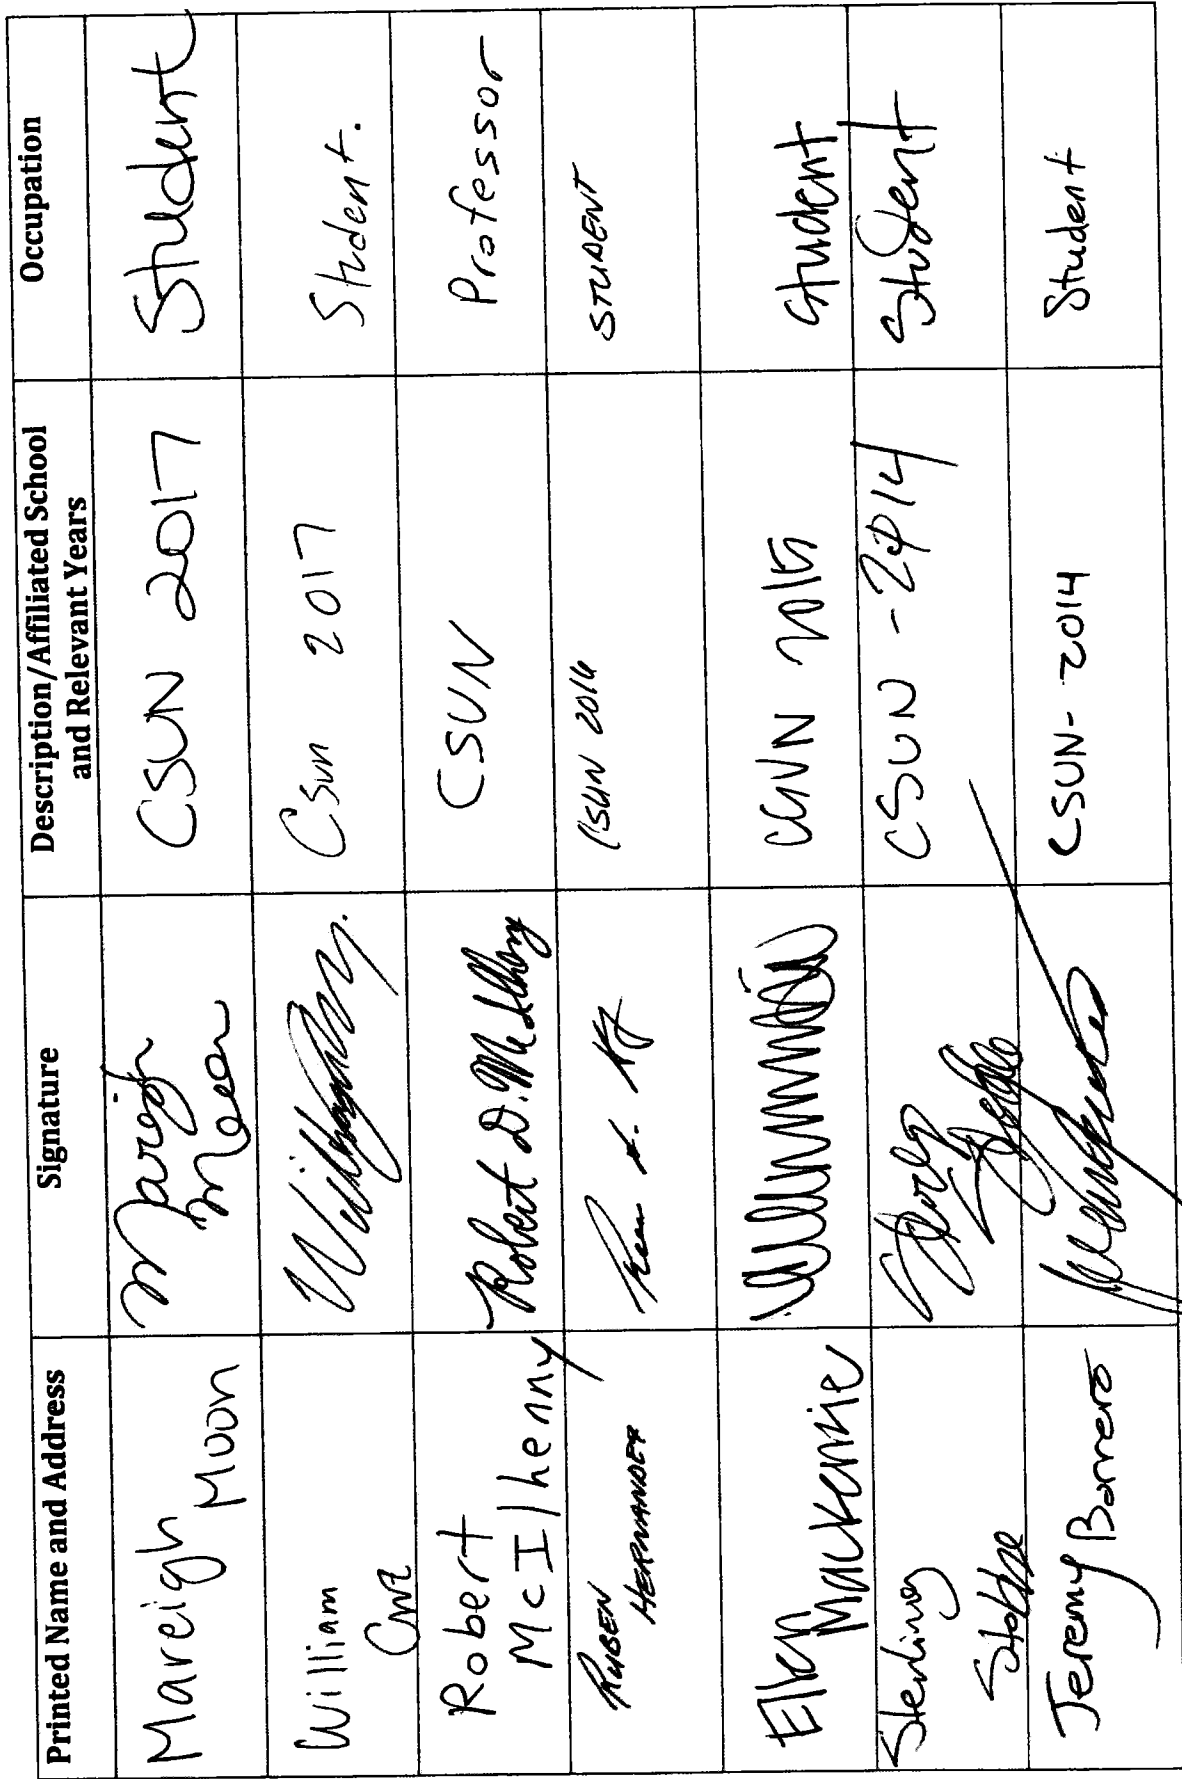 Printed Name and Address Signature Description/Affiliated School and Relevant Years Occupation
Mareigh Moon Mareigh Moon CSUN 2017 Student
William CSun 2017 Student.
Robert McIlhenny Robert D. McIlhenny CSUN Professor
RUBEN HERNANDEZ CSUN 2016 STUDENT
Ellen Mackenzie CSUN 2015 Student
Sterling CSUN - 2014 Student
Jeremy Borrero CSUN- 2014 Student